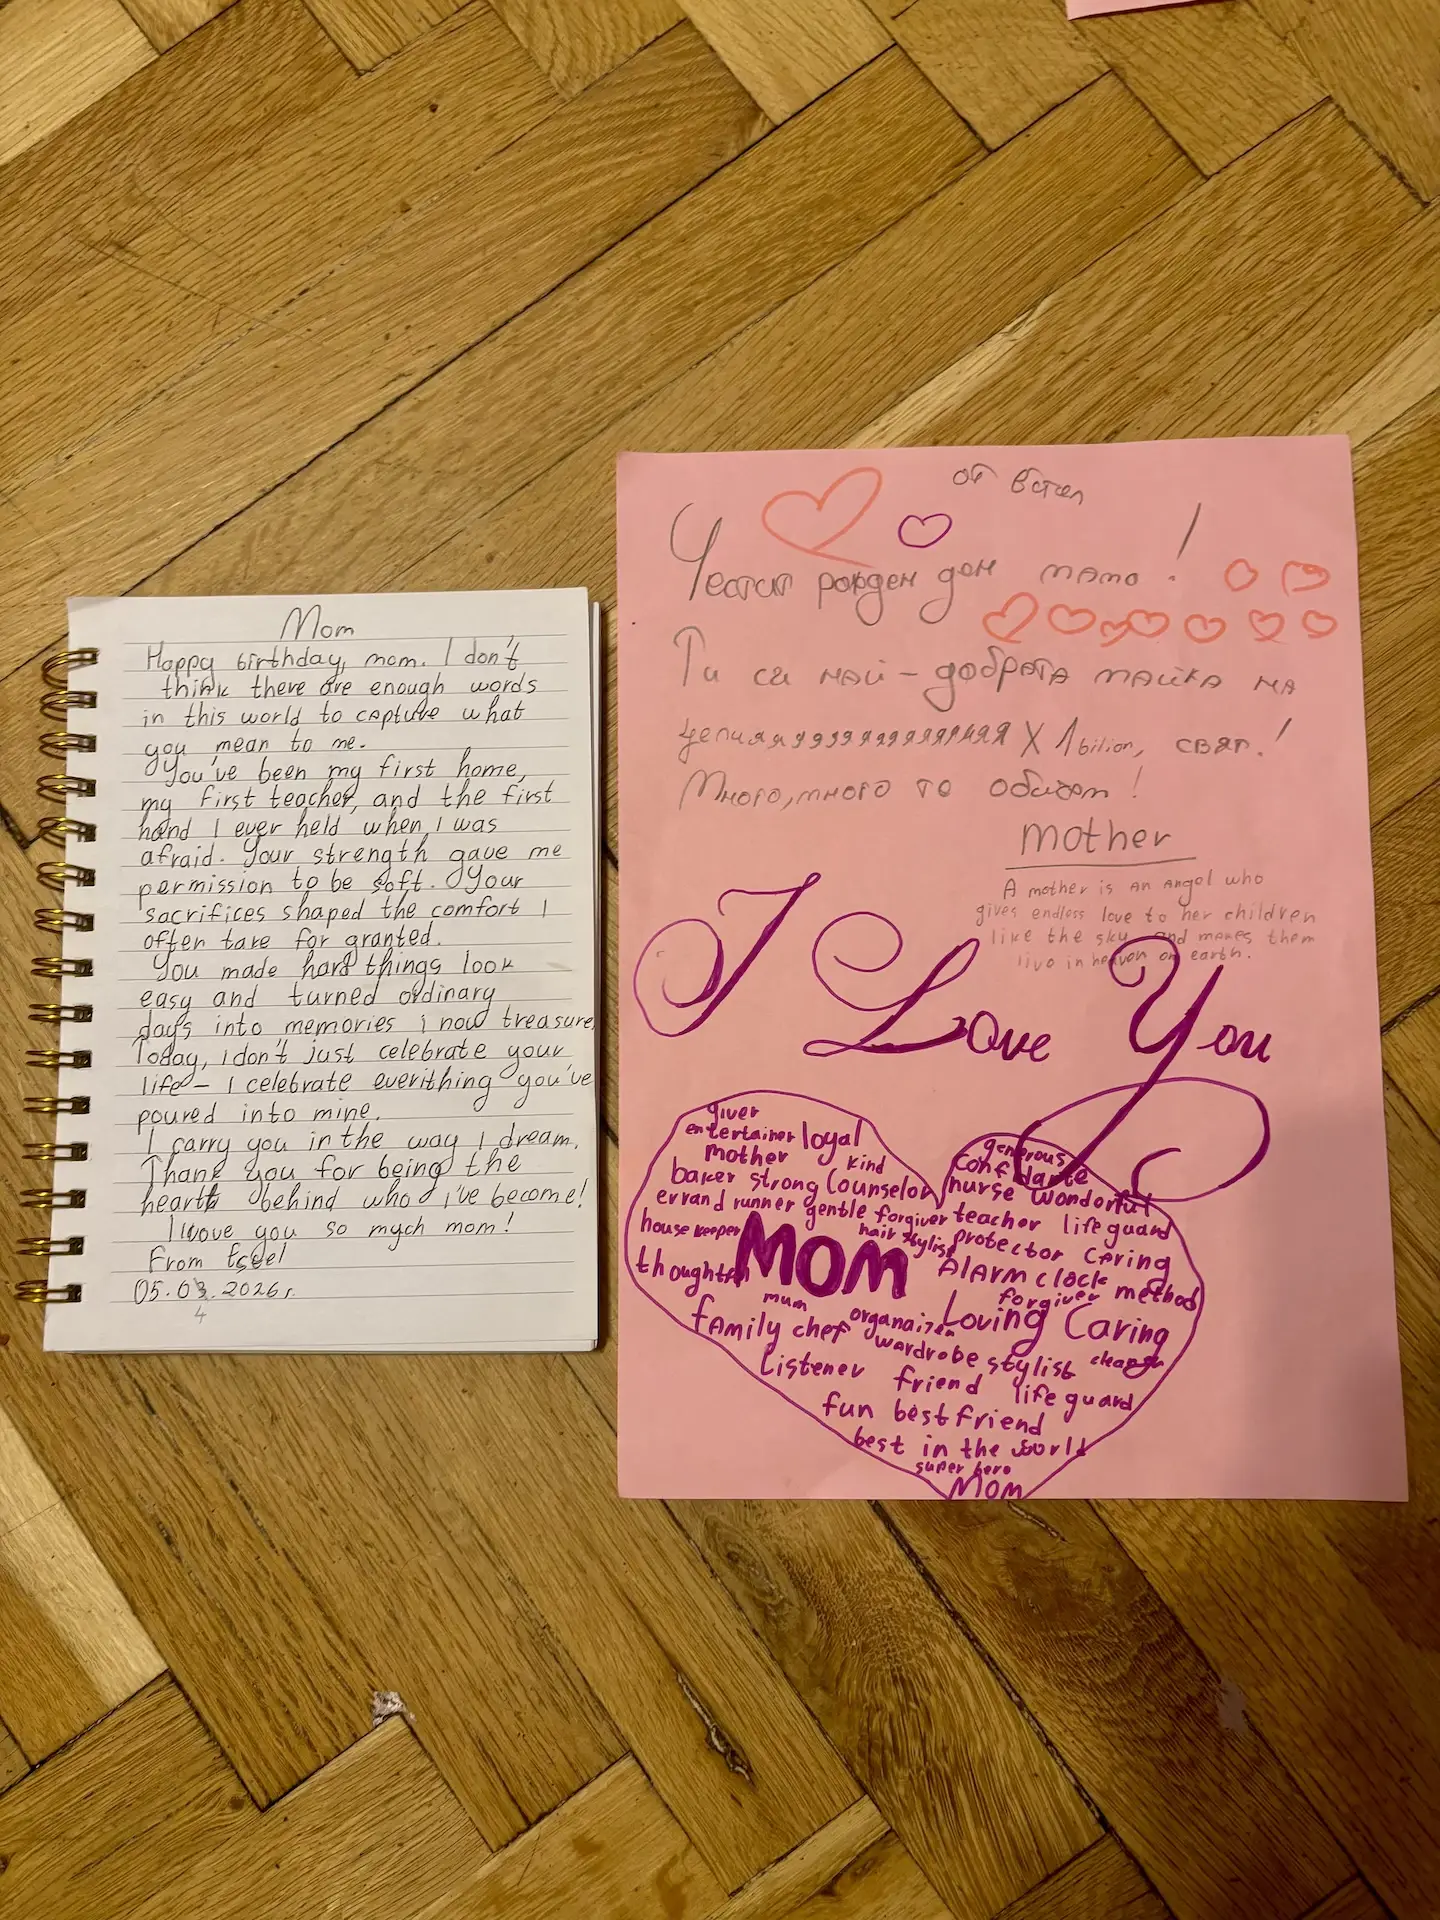 Mom
Happy birthday, mom. I don't
think there are enough words
in this world to capture what
you mean to me.
You've been my first home,
my first teacher, and the first
hand I ever held when I was
afraid. Your strength gave me
permission to be soft. Your
sacrifices shaped the comfort I
often take for granted.
You made hard things look
easy and turned ordinary
days into memories i now treasure.
Today, i don't just celebrate your
life – I celebrate everithing you've
poured into mine.
I carry you in the way I dream.
Thank you for being the
heart behind who i've become!
I love you so mych mom!
From
05.03.2026г.
4
от
Честит рожден ден мамо!
Ти си най-добрата майка на
X 1 bilion, свят.!
Много, много те обичам!
mother
A mother is an angel who
gives endless love to her children
like the sky and makes them
live in heaven on earth.
I Love You
giver
entertainer loyal
mother kind
baker strong Counselor
errand runner gentle forgiver
house keeper
MOM
hair stylist
thoughtful
generous
confidante
nurse wonderful
teacher lifeguard
protector caring
Alarm clock method
forgiver
mum
family chef
Loving Caring
wardrobe stylist
listener friend life guard
fun best friend
best in the world
super hero
Mom